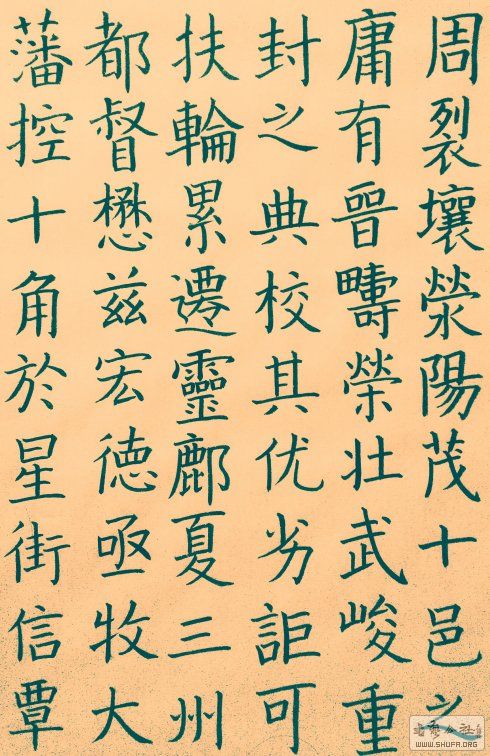 周裂壤滎陽茂十邑之
庸有晉疇榮壯武峻重
封之典校其优劣詎可
扶輪累遷靈鄜夏三州
都督懋兹宏德亟牧大
藩控十角於星街信覃
WWW.SHUFA.ORG